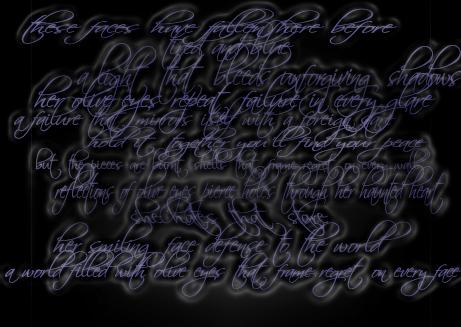 these faces have fallen here before
tired and blue
a light that bleeds unforgiving shadows
her olive eyes repeat failure in every glare
a failure that mirrors itself with a foreign
hold it together you'll find your peace
but the pieces are point shells that frame regret on every wall
reflections of olive eyes pierce holes through her haunted heart
she hates that stare
her smiling face defense to the world
a world filled with olive eyes that frame regret on every face